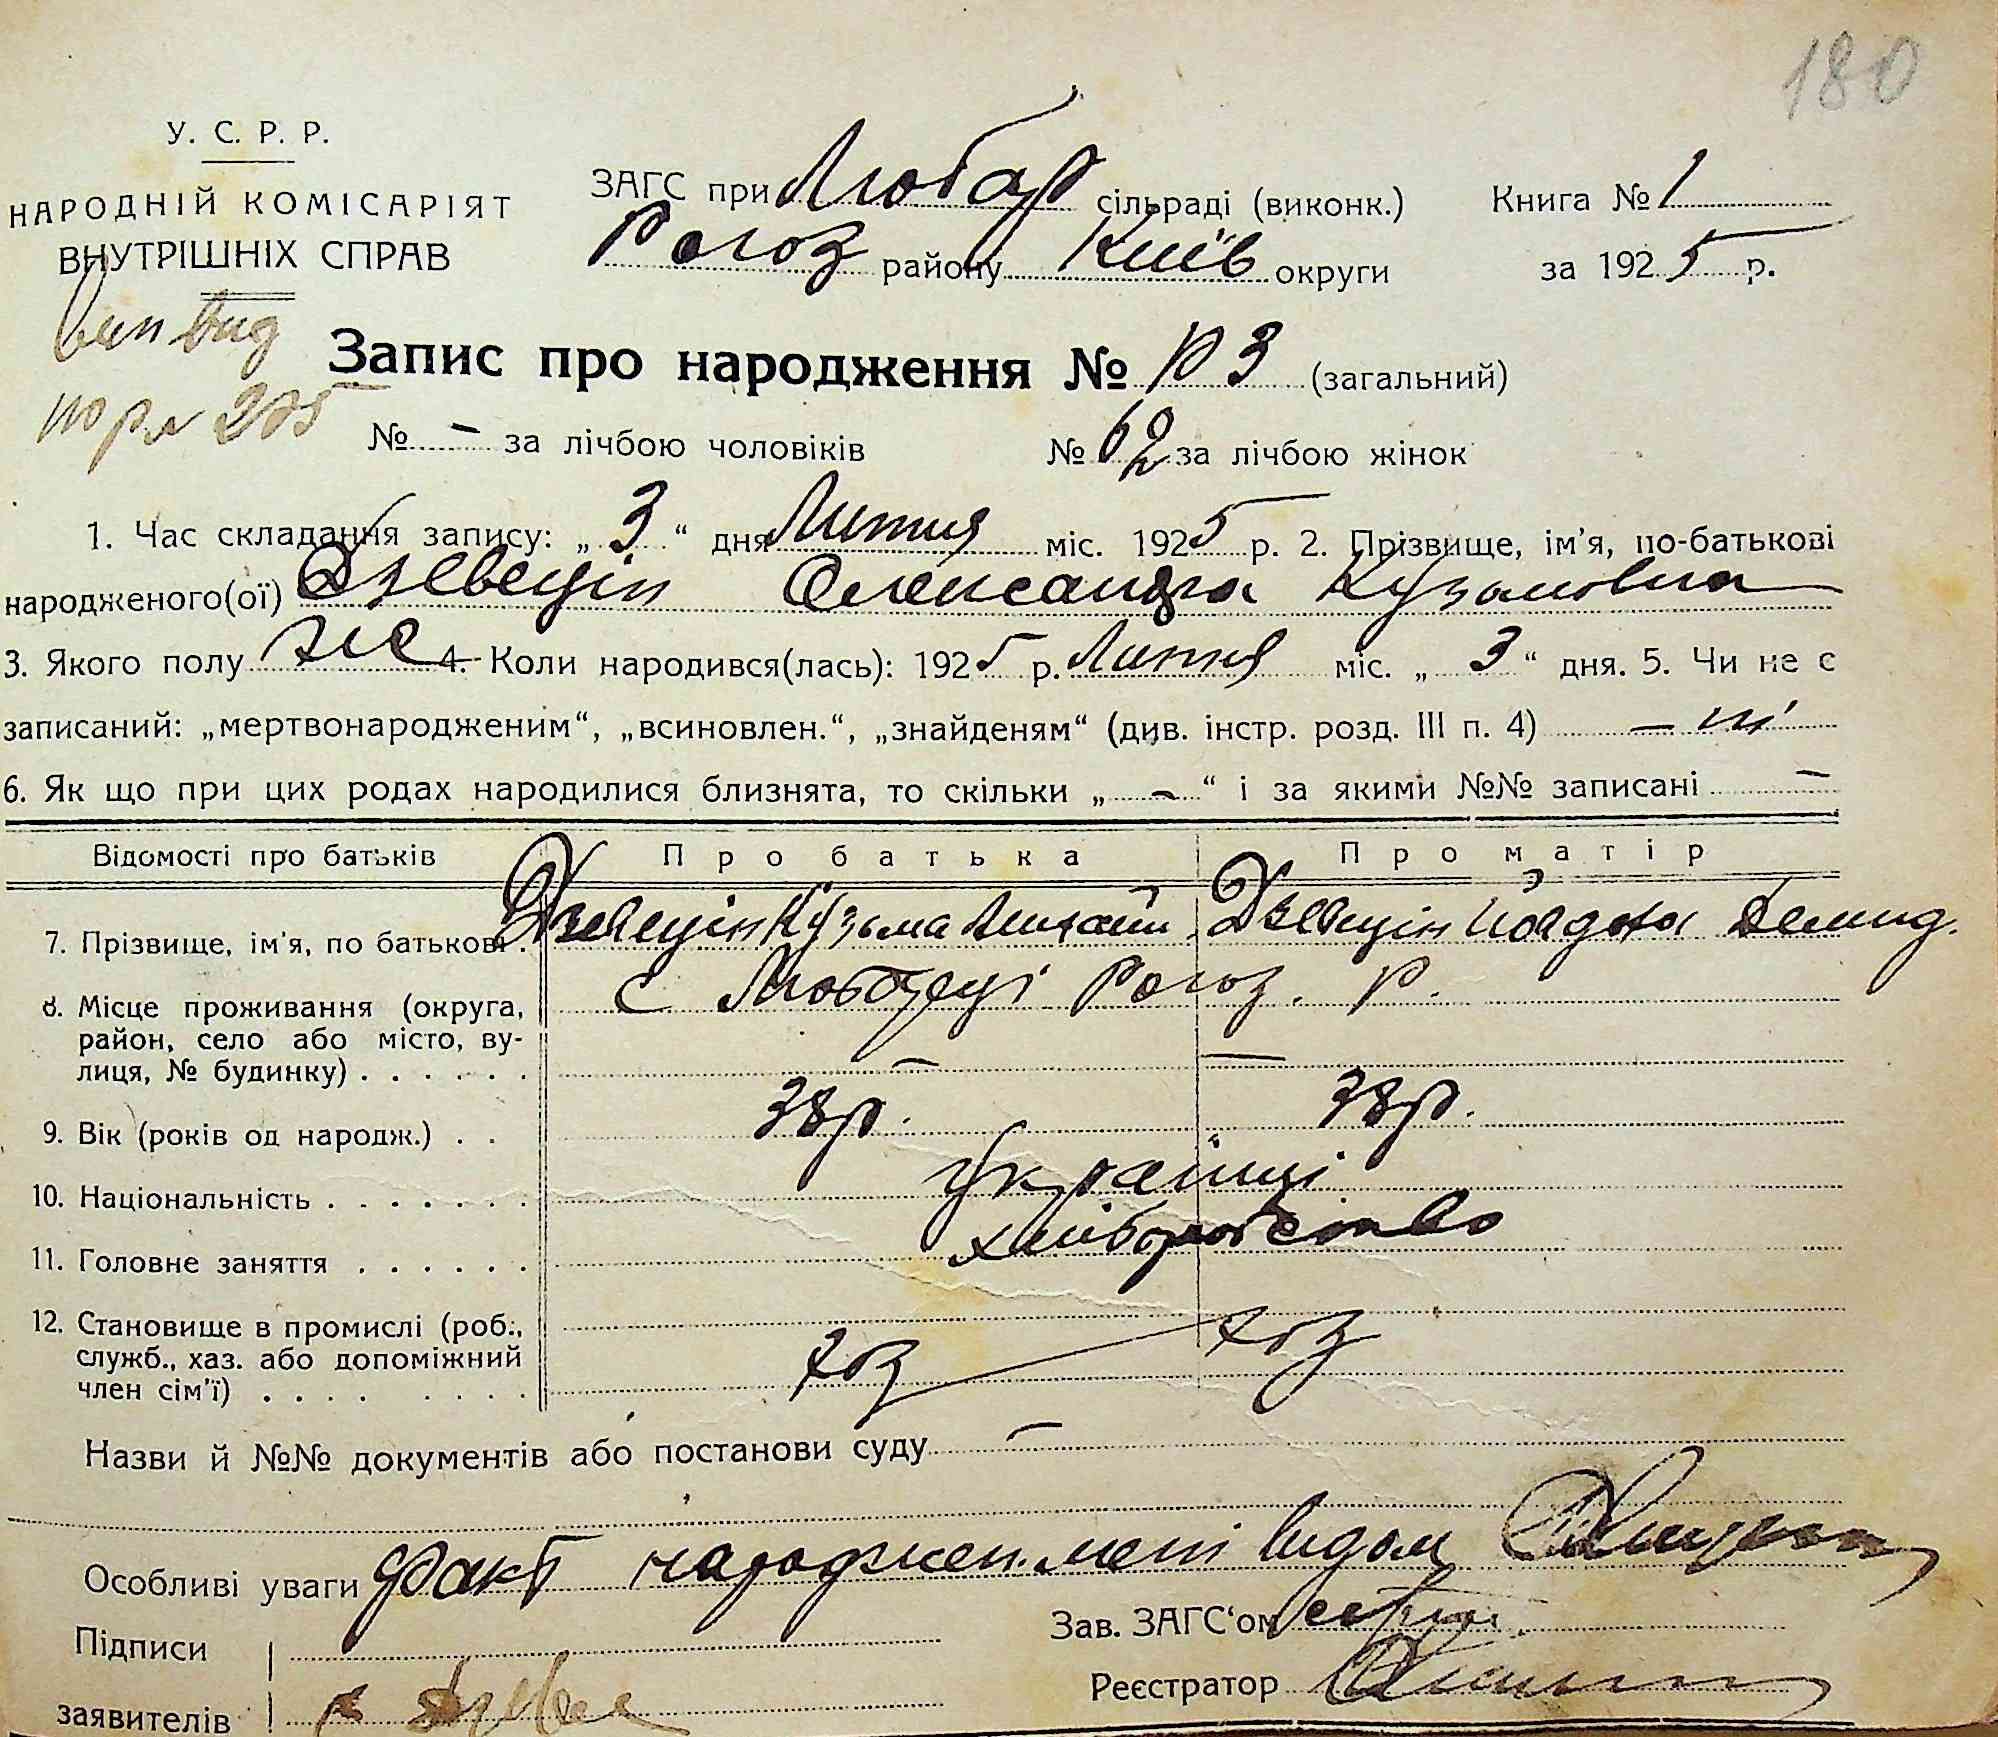 180
У. С. Р. Р.
НАРОДНІЙ КОМІСАРІЯТ
ВНУТРІШНІХ СПРАВ
ЗАГС при Любар сільраді (виконк.)
Рогоз району Київ округи
Книга № 1
за 1925 р.
вип вид
Запис про народження № 3 (загальний)
№ - за лічбою чоловіків № 62 за лічбою жінок
1. Час складання запису: „ 3 “ дня Лютня міс. 1925 р. 2. Прізвище, ім'я, по-батькові
народженого(ої) Дзевецін Олександра Кузьмовна
3. Якого полу жс 4. Коли народився(лась): 1925 р. Лютня міс. „ 3 “ дня. 5. Чи не є
записаний: „мертвонародженим“, „всиновлен.“, „знайденям“ (див. інстр. розд. III п. 4) – ні
6. Як що при цих родах народилися близнята, то скільки „ - “ і за якими №№ записані -
Відомості про батьків Про батька Про матір
7. Прізвище, ім'я, по батькові . Дзевецін Кузьма Дзевецін Демид.
8. Місце проживання (округа, с Любарці Рогоз. р.
район, село або місто, ву-
лиця, № будинку) . . . . . . – –
9. Вік (років од народж.) . . 38р. 38р.
10. Національність . . . . . . . Українці
11. Головне заняття . . . . . . хліборобство
12. Становище в промислі (роб.,
служб., хаз. або допоміжний хоз хоз
член сім'ї) . . . . . . . .
Назви й №№ документів або постанови суду –
Особливі уваги Факт народжен. мені видом
Підписи
заявителів
Зав. ЗАГС'ом
Реєстратор